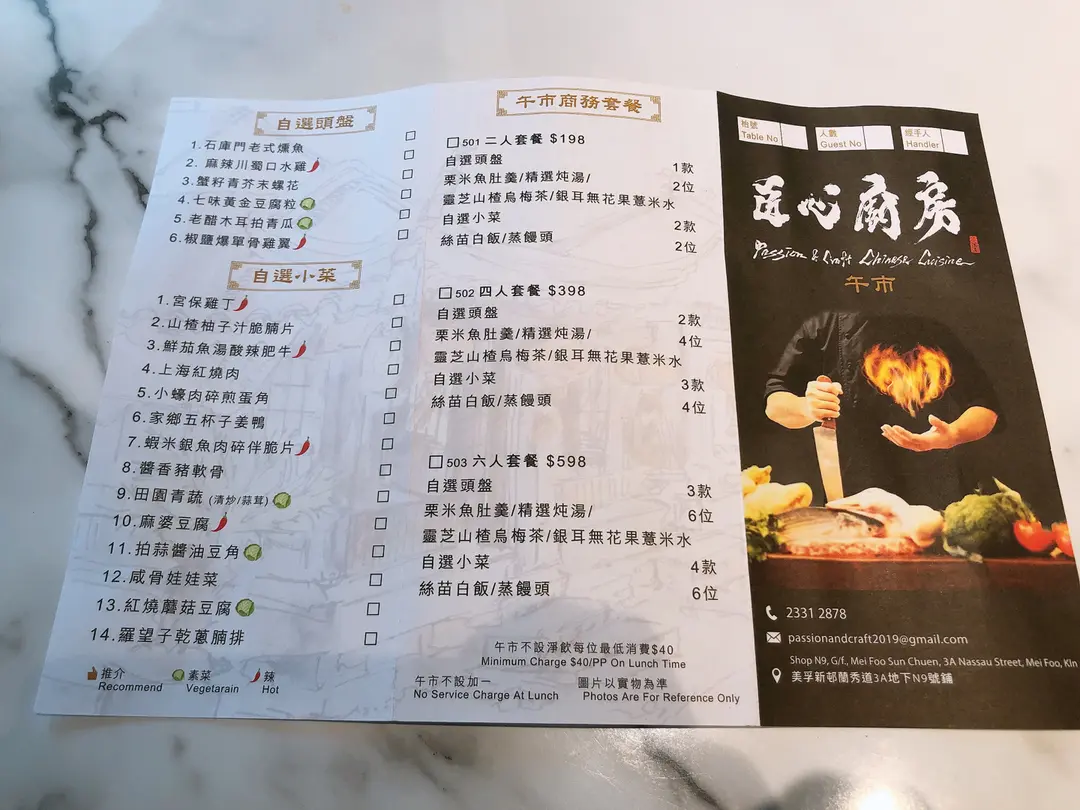 自選頭盤
1.石庫門老式燻魚
2. 麻辣川蜀口水雞
3.蟹籽青芥末螺花
4.七味黃金豆腐粒
5.老醋木耳拍青瓜
6.椒鹽爆單骨雞翼
自選小菜
1.宮保雞丁
2.山楂柚子汁脆腩片
3.鮮茄魚湯酸辣肥牛
4.上海紅燒肉
5.小蠔肉碎煎蛋角
6.家鄉五杯子姜鴨
7.蝦米銀魚肉碎伴脆片
8.醬香豬軟骨
9.田園青蔬 (清炒/蒜茸)
10.麻婆豆腐
11.拍蒜醬油豆角
12.咸骨娃娃菜
13.紅燒蘑菇豆腐
14.羅望子乾蔥腩排
推介 Recommend
素菜 Vegetarain
辣 Hot
午市商務套餐
501 二人套餐 $198
自選頭盤 1款
栗米魚肚羹/精選炖湯/ 2位
靈芝山楂烏梅茶/銀耳無花果薏米水
自選小菜 2款
絲苗白飯/蒸饅頭 2位
502 四人套餐 $398
自選頭盤 2款
栗米魚肚羹/精選炖湯/ 4位
靈芝山楂烏梅茶/銀耳無花果薏米水
自選小菜 3款
絲苗白飯/蒸饅頭 4位
503 六人套餐 $598
自選頭盤 3款
栗米魚肚羹/精選炖湯/ 6位
靈芝山楂烏梅茶/銀耳無花果薏米水
自選小菜 4款
絲苗白飯/蒸饅頭 6位
午市不設淨飲每位最低消費$40
Minimum Charge $40/PP On Lunch Time
午市不設加一 圖片以實物為準
No Service Charge At Lunch Photos Are For Reference Only
枱號 人數 經手人
Table No Guest No Handler
匠心廚房
Passion & Craft Chinese Cuisine
午市
2331 2878
passionandcraft2019@gmail.com
Shop N9, G/f., Mei Foo Sun Chuen, 3A Nassau Street, Mei Foo, Kln
美孚新邨蘭秀道3A地下N9號鋪